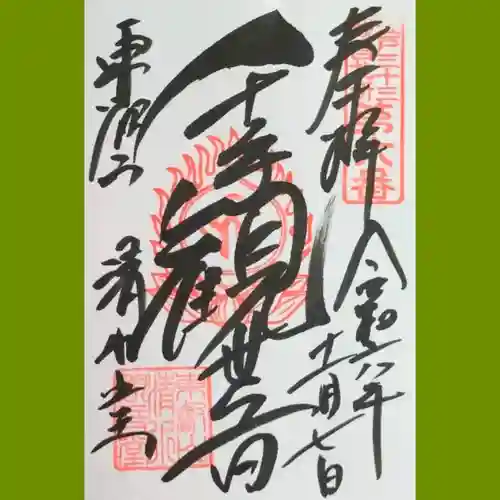 奉拝
令和六年
十一月七日
千手観世音
東叡山
清水堂